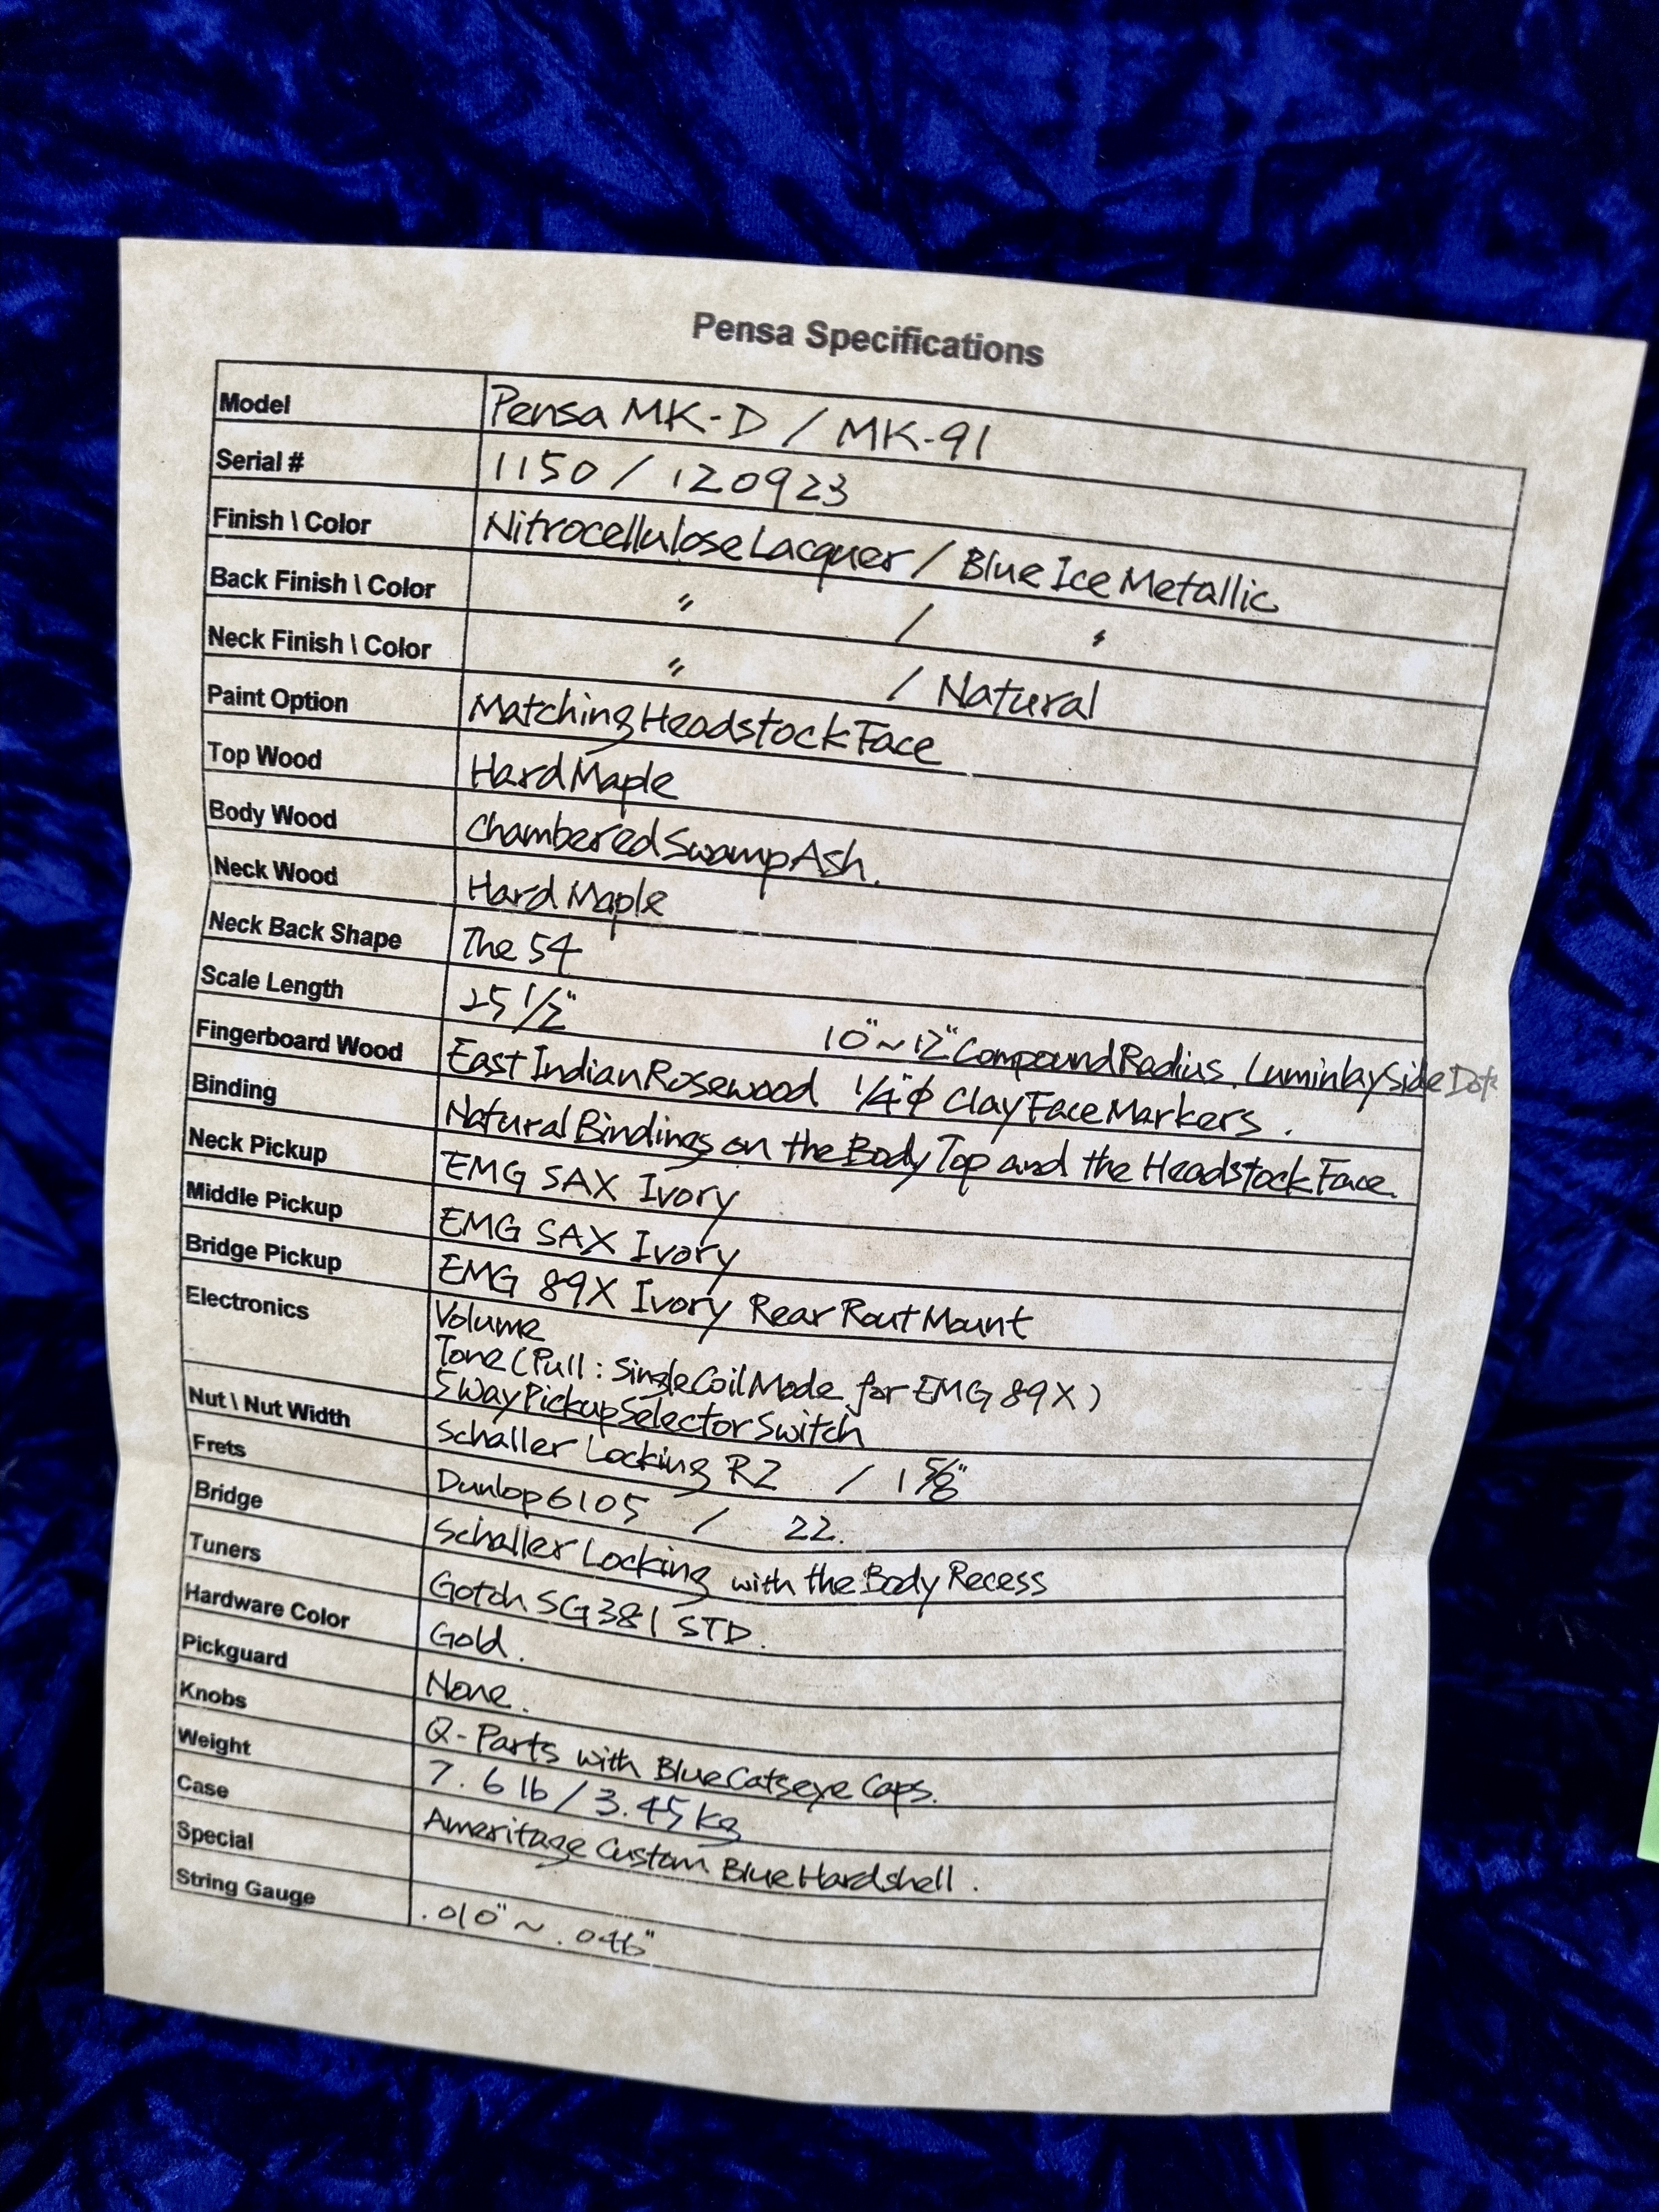 Pensa Specifications
Model Pensa MK-D / MK-91
Serial # 1150 / 120923
Finish \ Color Nitrocellulose Lacquer / Blue Ice Metallic
Back Finish \ Color 〃 / 〃
Neck Finish \ Color 〃 / Natural
Paint Option Matching Headstock Face
Top Wood Hard Maple
Body Wood Chambered Swamp Ash.
Neck Wood Hard Maple
Neck Back Shape The 54
Scale Length 25 1/2"
10" ~ 12" Compound Radius. Luminlay Side Dots
Fingerboard Wood East Indian Rosewood 1/4"φ Clay Face Markers.
Binding Natural Bindings on the Body Top and the Headstock Face.
Neck Pickup EMG SAX Ivory
Middle Pickup EMG SAX Ivory
Bridge Pickup EMG 89X Ivory Rear Rout Mount
Electronics Volume
Tone (Pull : Single Coil Mode for EMG 89X)
5 Way Pickup Selector Switch
Nut \ Nut Width Schaller Locking R2 / 1 5/8"
Frets Dunlop 6105 / 22.
Bridge Schaller Locking with the Body Recess
Tuners Gotoh SG381 STD.
Hardware Color Gold.
Pickguard None.
Knobs Q-Parts with Blue Catseye Caps.
Weight 7.6 lb / 3.45 kg
Case Ameritage Custom Blue Hardshell.
Special
String Gauge .010" ~ .046"